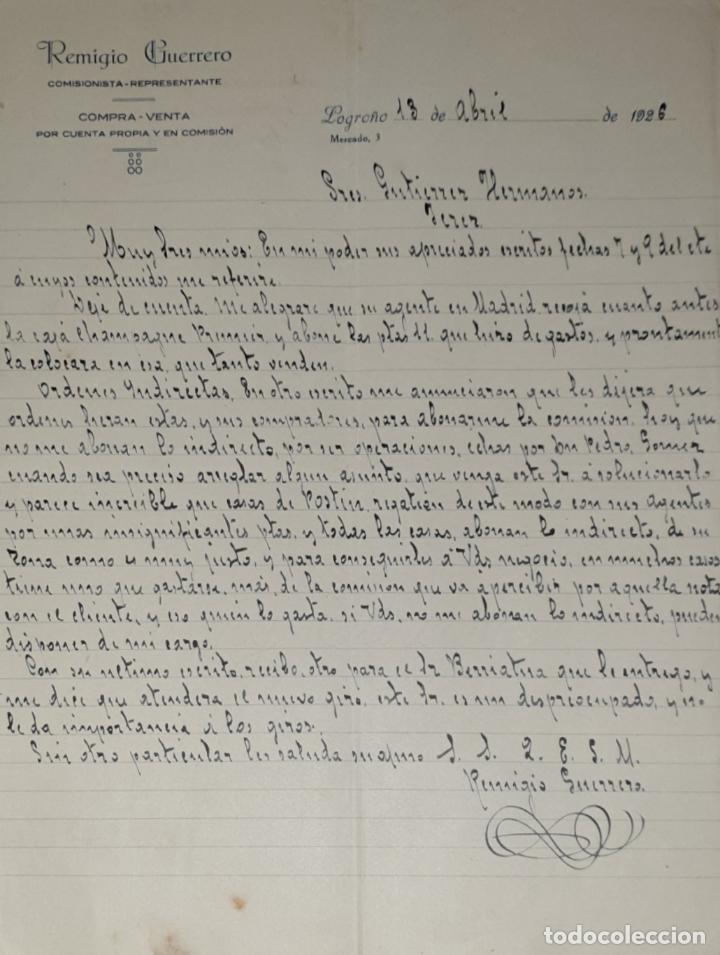 Remigio Guerrero
COMISIONISTA-REPRESENTANTE
COMPRA - VENTA
POR CUENTA PROPIA Y EN COMISIÓN
Logroño 13 de Abril de 1926
Mercado, 3
Sres. Gutierrez Hermanos.
Jerez
Muy Sres mios: En mi poder sus apreciados escritos fechas 7 y 9 del cte
á cuyos contenidos me referire.
Deje de cuenta. Me alegrare que su agente en Madrid, recoja cuanto antes
la caja Champagne Premier, y abone las ptas 11. que hizo de gastos, y prontament
la colocara en esa, que tanto venden.
Ordenes Indirectas, En otro escrito me anunciaron que les dijera que
ordenes heran estas, y sus compradores, para abonarme la comision, hoy que
no me abonan lo indirecto, por ser operaciones, echas por Dn Pedro Gomez
cuando sea preciso arreglar algun asunto, que venga este Sr. á solucionarlo
y parece increible que casas de Postin, regatien de este modo con sus agentes
por unas insignifigantes ptas. y todas las casas, abonan lo indirecto, de su
zona como es muy justo, y para conseguirles á Vds negocio, en muchos casos
tiene uno que gastarse, más, de la comision que va á percibir por aquella nota
con el cliente, y eso quien lo gasta, si Vds, no me abonan lo indirecto, pueden
disponer de mi cargo.
Con su ultimo escrito, recibo, otro para el Sr Berriatua que le entrego, y
me dice que atendera el nuevo giro, este Sr. es un despreocupado, y no
le da importancia á los giros.
Sin otro particular les saluda su afmo S. S. Q. E. S. M.
Remigio Guerrero.
todocoleccion